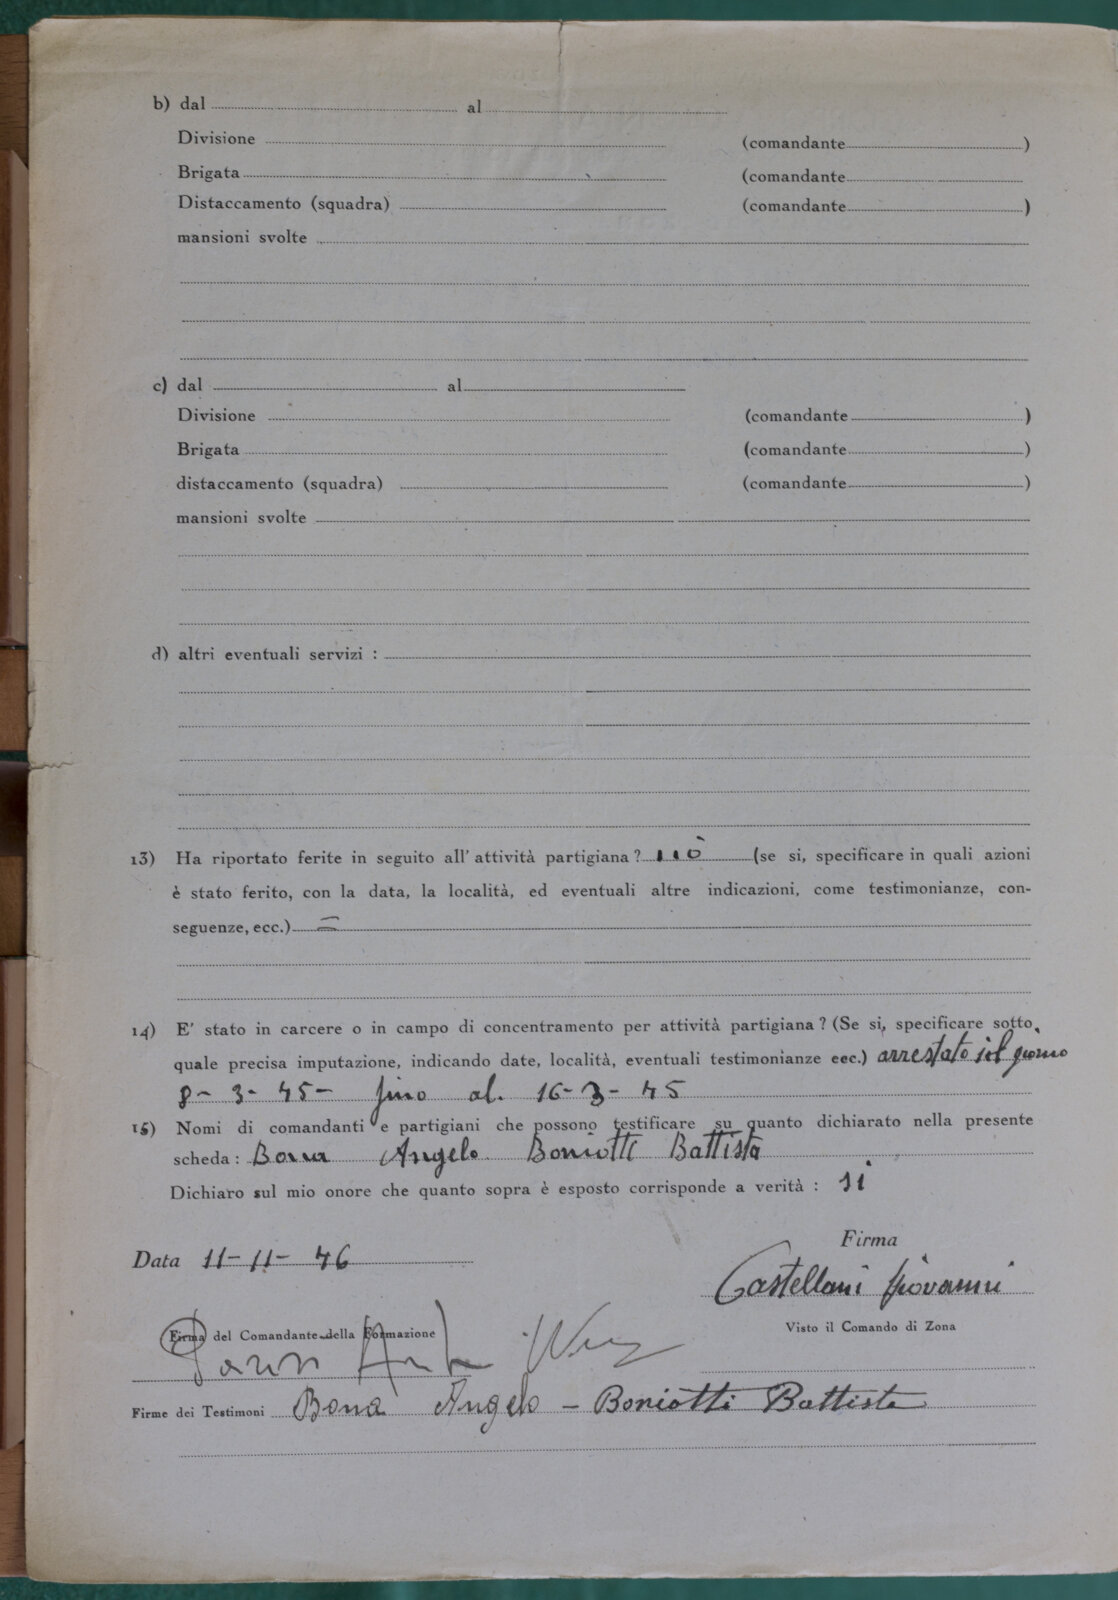 b) dal al
Divisione (comandante )
Brigata (comandante
Distaccamento (squadra) (comandante )
mansioni svolte
c) dal al
Divisione (comandante )
Brigata (comandante )
distaccamento (squadra) (comandante )
mansioni svolte
d) altri eventuali servizi :
13) Ha riportato ferite in seguito all' attività partigiana ? nò (se si, specificare in quali azioni
è stato ferito, con la data, la località, ed eventuali altre indicazioni, come testimonianze, con-
seguenze, ecc.) =
14) E' stato in carcere o in campo di concentramento per attività partigiana ? (Se si, specificare sotto
quale precisa imputazione, indicando date, località, eventuali testimonianze eec.) arrestato il giorno
8- 3- 45- fino al. 16-3-45
15) Nomi di comandanti e partigiani che possono testificare su quanto dichiarato nella presente
scheda : Bona Angelo Boniotti Battista
Dichiaro sul mio onore che quanto sopra è esposto corrisponde a verità : si
Firma
Data 11-11-46
Castellani Giovanni
Firma del Comandante della Formazione
Visto il Comando di Zona
Firme dei Testimoni Bona Angelo - Boniotti Battista